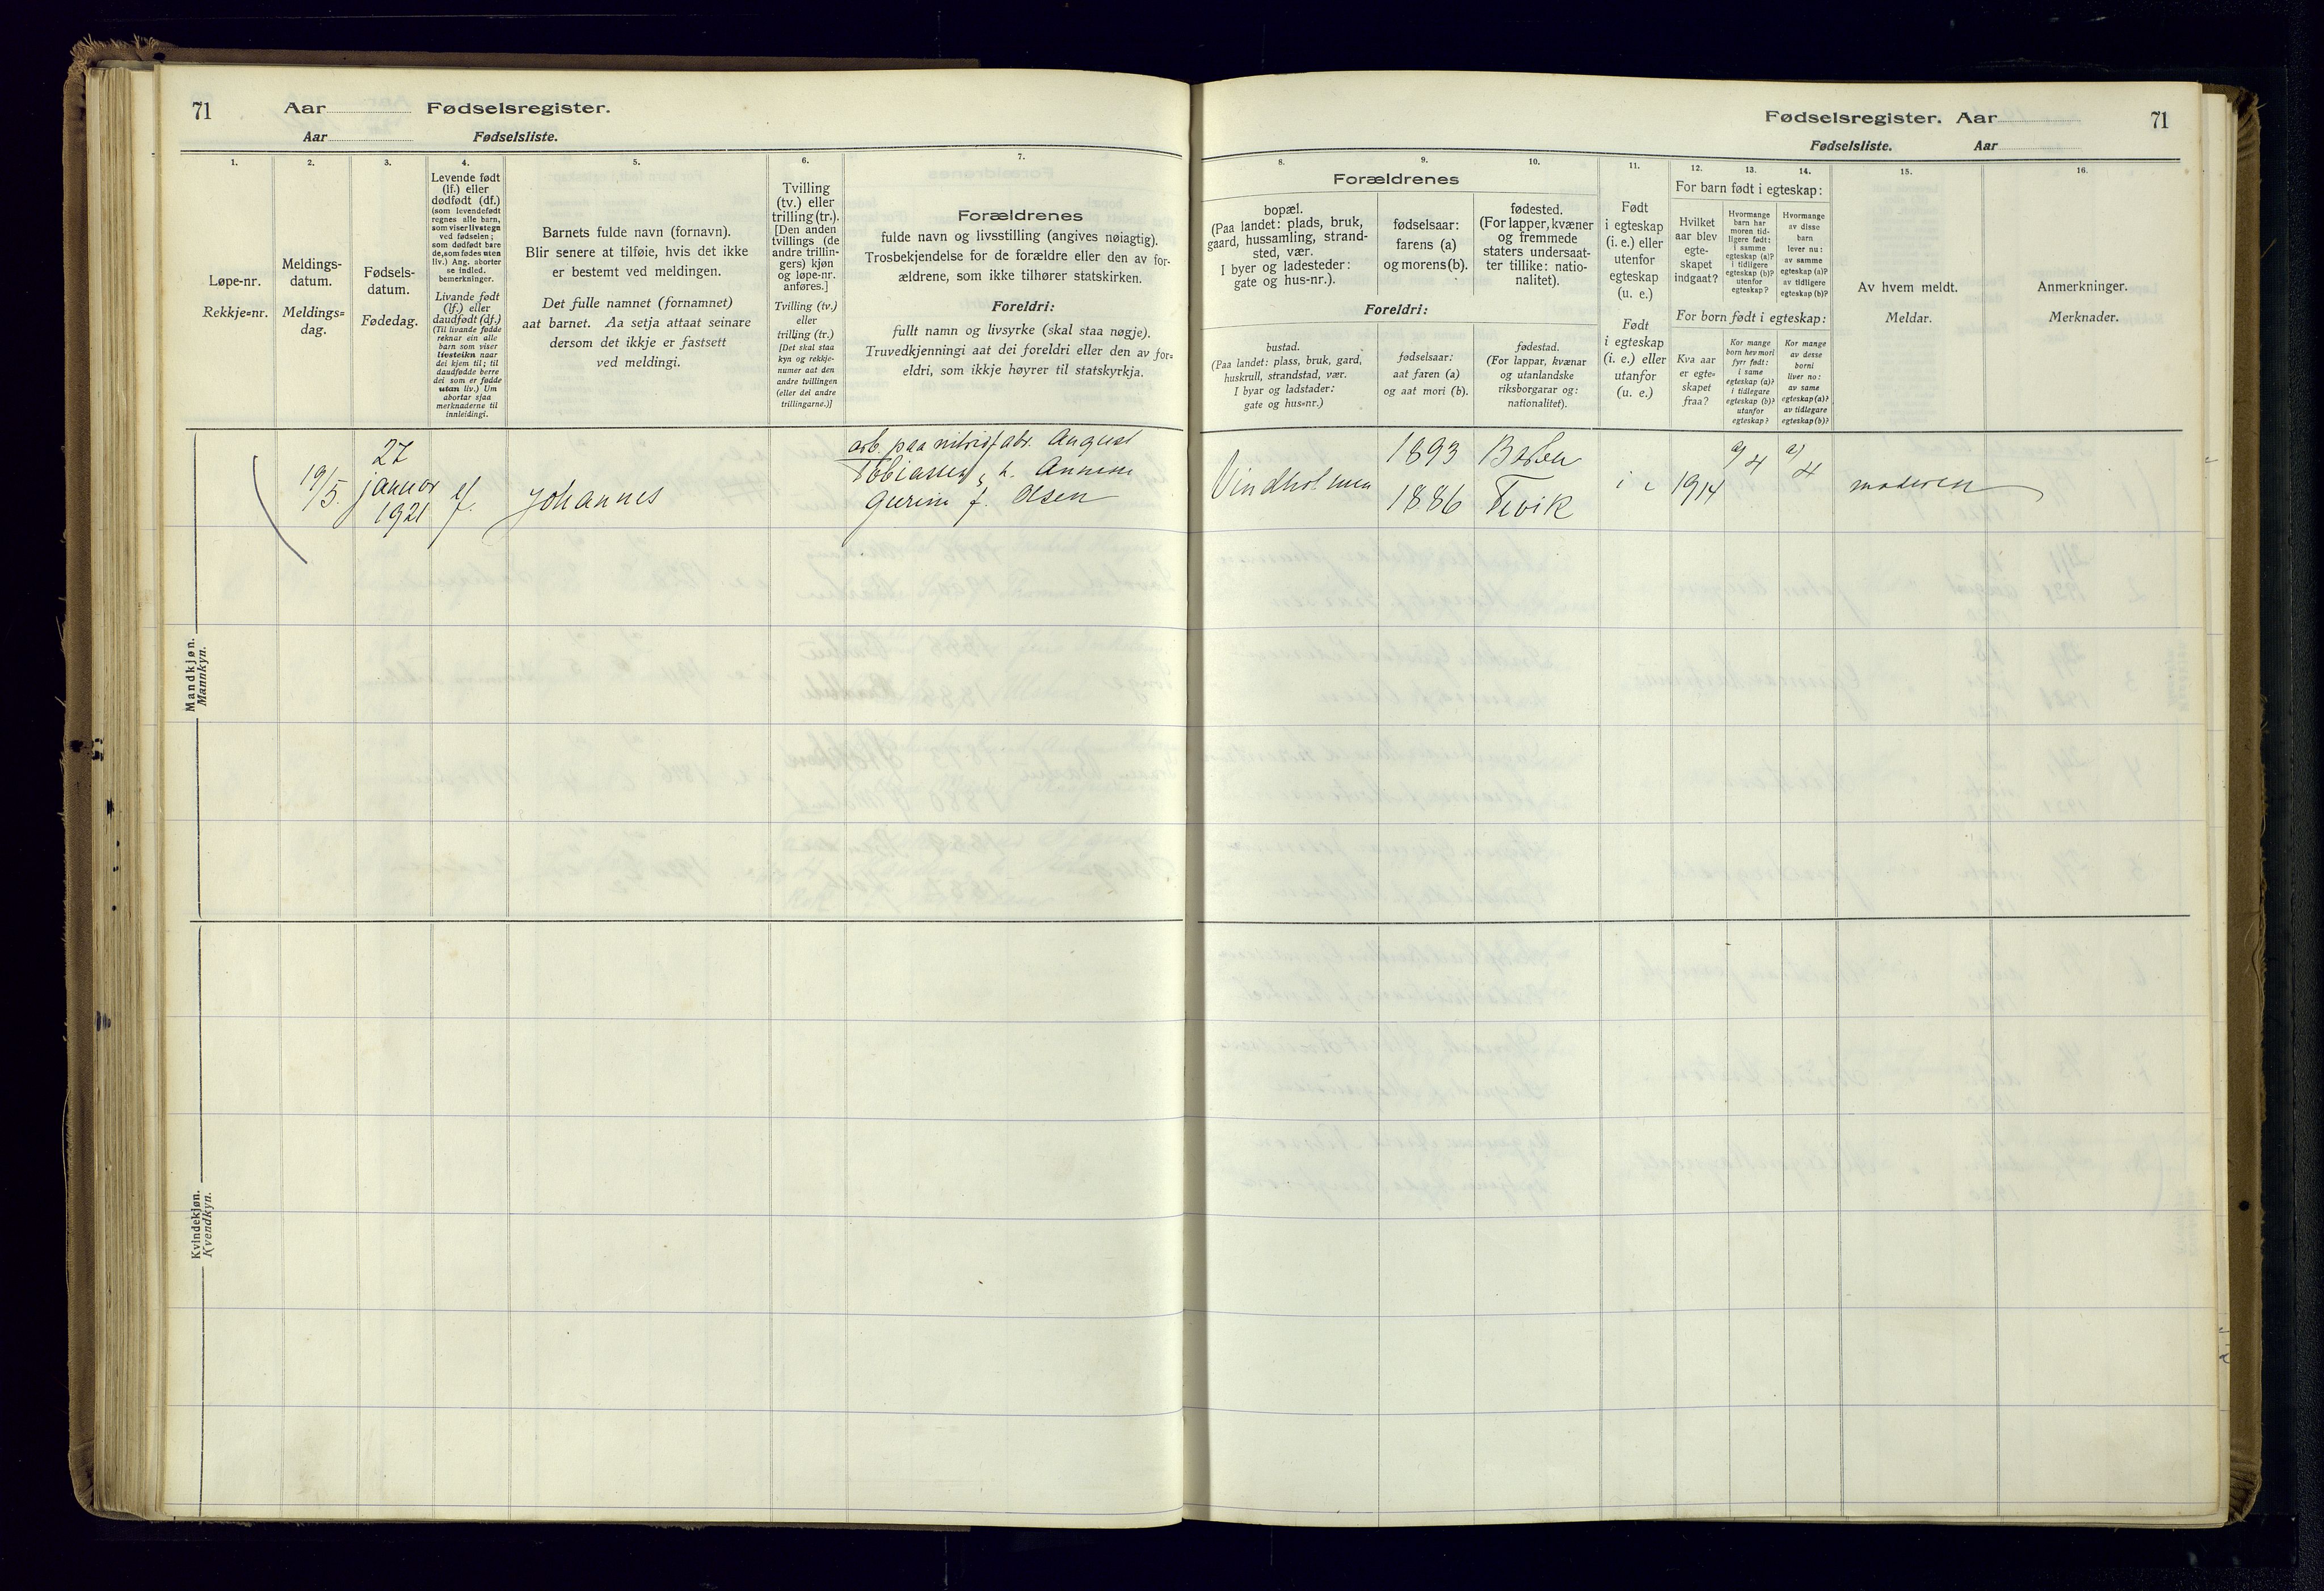 71
Aar Fødselsregister.
Aar Fødselsliste.
1.
Løpe-nr.
Rekkje=nr.
2.
Meldings-
datum.
Meldings=
dag.
3.
Fødsels-
datum.
Fødedag.
4.
Levende født
(lf.) eller
dødfødt (df.)
(som levendefødt
regnes alle barn,
som viser livstegn
ved fødselen;
som dødfødt bare
de, som fødes uten
liv.) Ang. aborter
se indled.
bemerkninger.
Livande født
(lf.) eller
daudfødt (df.)
(Til livande fødde
reknar ein alle
barn som viser
livsteikn naar
dei kjem til; til
daudfødde berre
dei som er fødde
utan liv.) Um
abortar sjaa
merknaderne til
innleidingi.
5.
Barnets fulde navn (fornavn).
Blir senere at tilføie, hvis det ikke
er bestemt ved meldingen.
Det fulle namnet (fornamnet)
aat barnet. Aa setja attaat seinare
dersom det ikkje er fastsett
ved meldingi.
6.
Tvilling
(tv.) eller
trilling (tr.).
[Den anden
tvillings (de
andre trillin-
gers) kjøn
og løpe-nr.
anføres.]
Tvilling (tv.)
eller
trilling (tr.)
[Det skal staa
kyn og rekkje-
numer aat den
andre tvillingen
(eller dei andre
trillingarne.)]
7.
Forældrenes
fulde navn og livsstilling (angives nøiagtig).
Trosbekjendelse for de forældre eller den av for-
ældrene, som ikke tilhører statskirken.
Foreldri:
fullt namn og livsyrke (skal staa nøgje).
Truvedkjenningi aat dei foreldri eller den av for=
eldri, som ikkje høyrer til statskyrkja.
19/5.
27
januar
1921
lf.
Johannes
arb. paa nitridfabr. August
Tobiassen, h. Annette
Gurine f. Olsen
Mandkjøn.
Mannkyn.
Kvindekjøn.
Kvendkyn.
Fødselsregister. Aar 71
Fødselsliste. Aar
8.
Forældrenes
bopæl.
(Paa landet: plads, bruk,
gaard, hussamling, strand-
sted, vær.
I byer og ladesteder:
gate og hus-nr.).
Foreldri:
bustad.
(Paa landet: plass, bruk, gard,
huskrull, strandstad, vær.
I byar og ladstader:
gate og hus=nr.)
9.
fødselsaar:
farens (a)
og morens (b).
fødselsaar:
aat faren (a)
og aat mori (b).
10.
fødested.
(For lapper, kvæner
og fremmede
staters undersaat-
ter tillike: natio-
nalitet).
fødestad.
(For lappar, kvænar
og utanlandske
riksborgarar og:
nationalitet).
11.
Født
i egteskap
(i. e.) eller
utenfor
egteskap
(u. e.)
Født
i egteskap
(i. e.) eller
utanfor
(u. e.)
12.
For barn født i egteskap:
Hvilket
aar blev
egte-
skapet
indgaat?
For born født i egteskap:
Kva aar
er egte=
skapet
fraa?
13.
Hvormange
barn har
moren tid-
ligere født:
i samme
egteskap (a)?
i tidligere
egteskap (b)?
utenfor
egteskap?
Kor mange
born hev mori
fyrr født:
i same
egteskap (a)?
i tidlegare
egteskap (b)?
utanfor
egteskap?
14.
Hvormange
av disse
barn
lever nu:
av samme
egteskap (a)?
av tidligere
egteskap (b)?
Kor mange
av desse
borni
liver no:
av same
egteskap (a)?
av tidlegare
egteskap (b)?
15.
Av hvem meldt.
Meldar.
16.
Anmerkninger.
Merknader.
Vindholmen
1893
1886
Barbu
Fevik
i e
1914
a/4
a/4
moderen